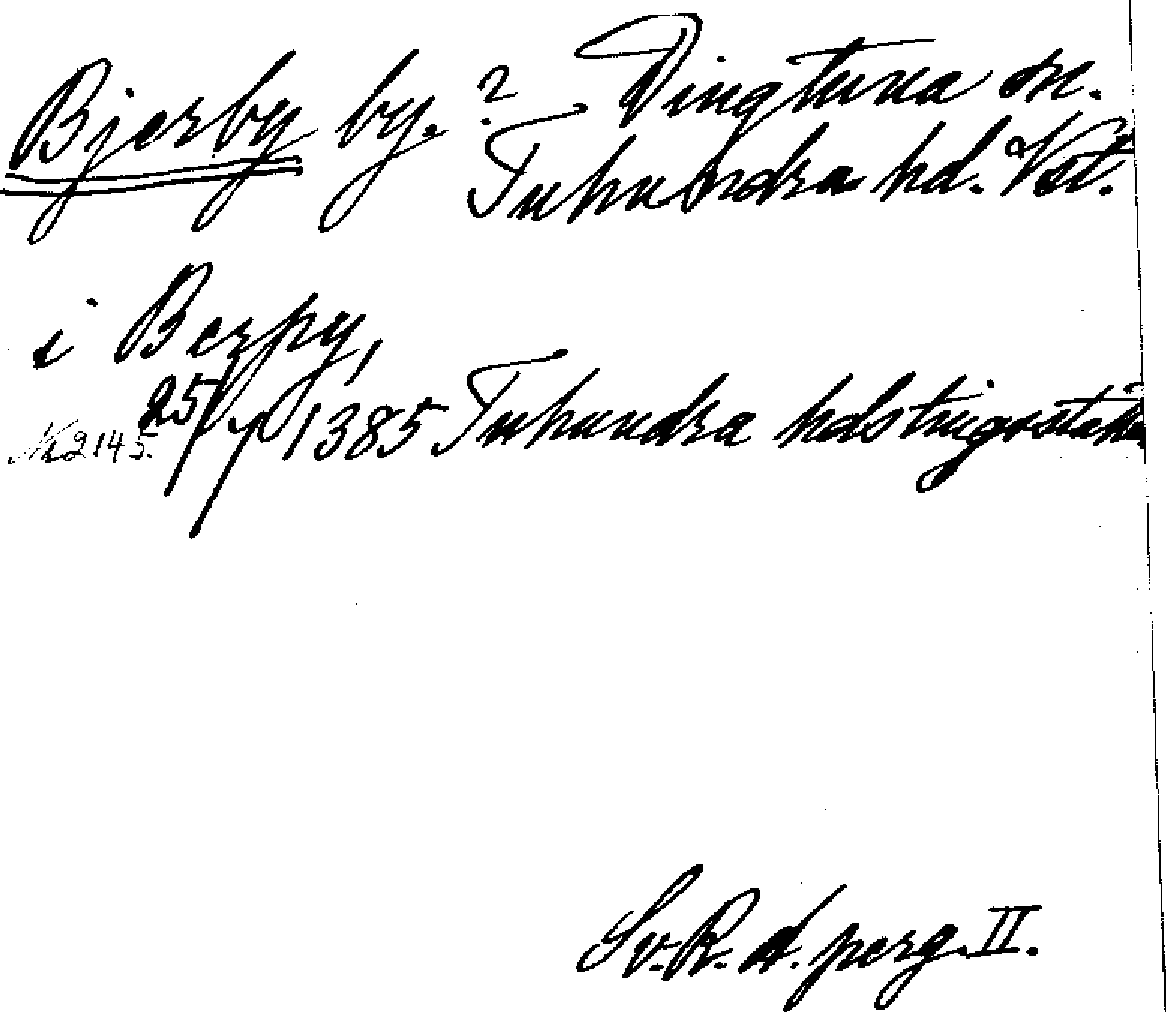 Bjerby by. ? Dingtuna sn.
Tuhundra hd. Vst.
i Berpy,
N 2145. 25/7 1385 Tuhundra hdstingsställe
Sv. R. A. perg. II.